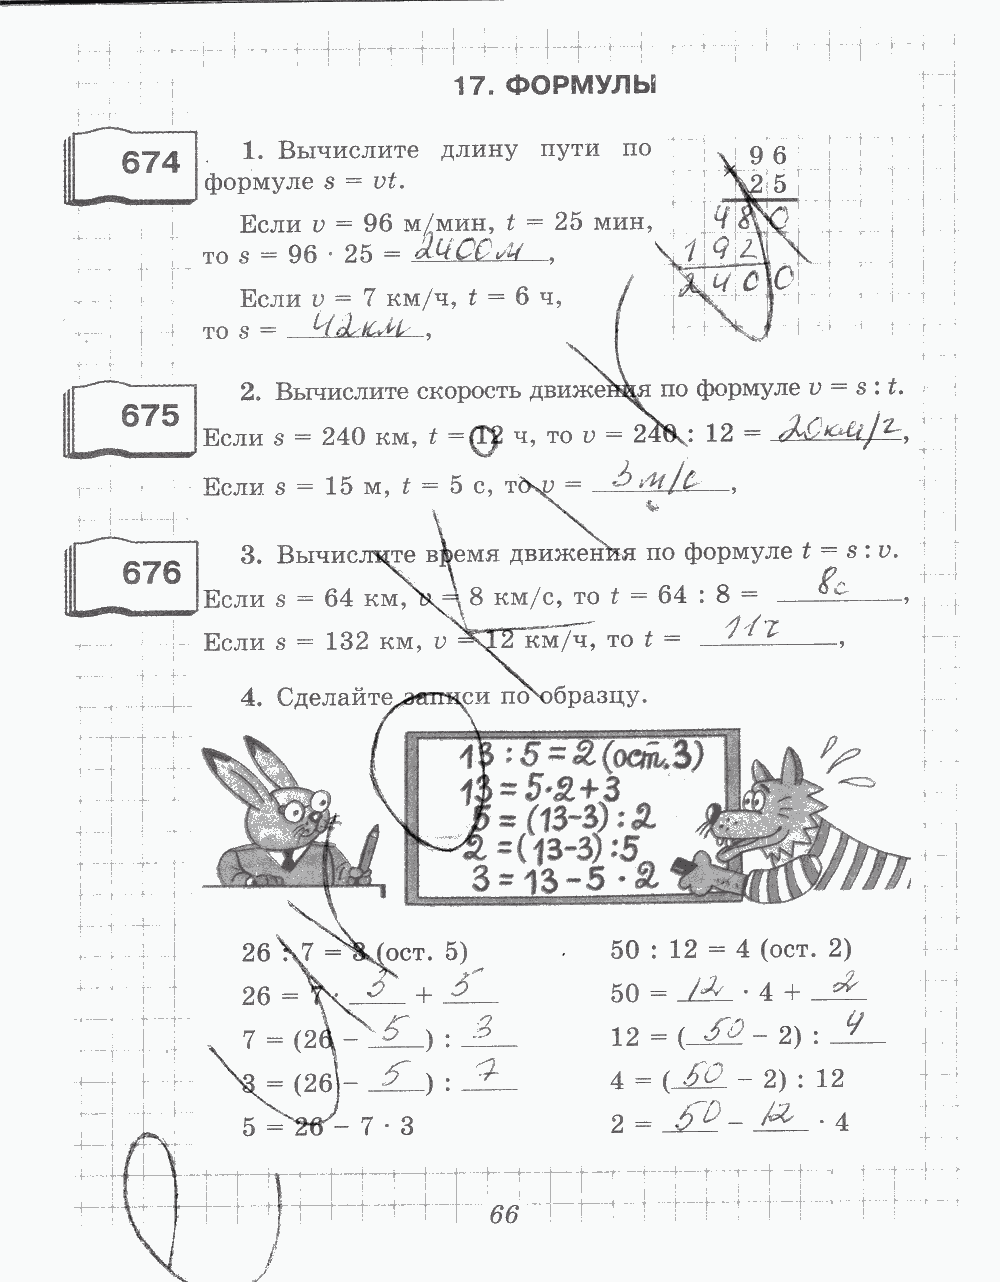 17. ФОРМУЛЫ
674
1. Вычислите длину пути по
формуле s = vt.
Если v = 96 м/мин, t = 25 мин,
то s = 96 · 25 = 2400 м,
Если v = 7 км/ч, t = 6 ч,
то s = 42 км,
96
× 25
480
192
2400
675
2. Вычислите скорость движения по формуле v = s : t.
Если s = 240 км, t = 12 ч, то v = 240 : 12 = 20 км/ч,
Если s = 15 м, t = 5 с, то v = 3 м/с,
676
3. Вычислите время движения по формуле t = s : v.
Если s = 64 км, v = 8 км/с, то t = 64 : 8 = 8с,
Если s = 132 км, v = 12 км/ч, то t = 11ч,
4. Сделайте записи по образцу.
13 : 5 = 2 (ост. 3)
13 = 5·2+3
5 = (13-3) : 2
2 = (13-3) : 5
3 = 13 - 5 · 2
26 : 7 = 3 (ост. 5)
26 = 7 · 3 + 5
7 = (26 − 5) : 3
3 = (26 − 5) : 7
5 = 26 − 7 · 3
50 : 12 = 4 (ост. 2)
50 = 12 · 4 + 2
12 = (50 − 2) : 4
4 = (50 − 2) : 12
2 = 50 − 12 · 4
66